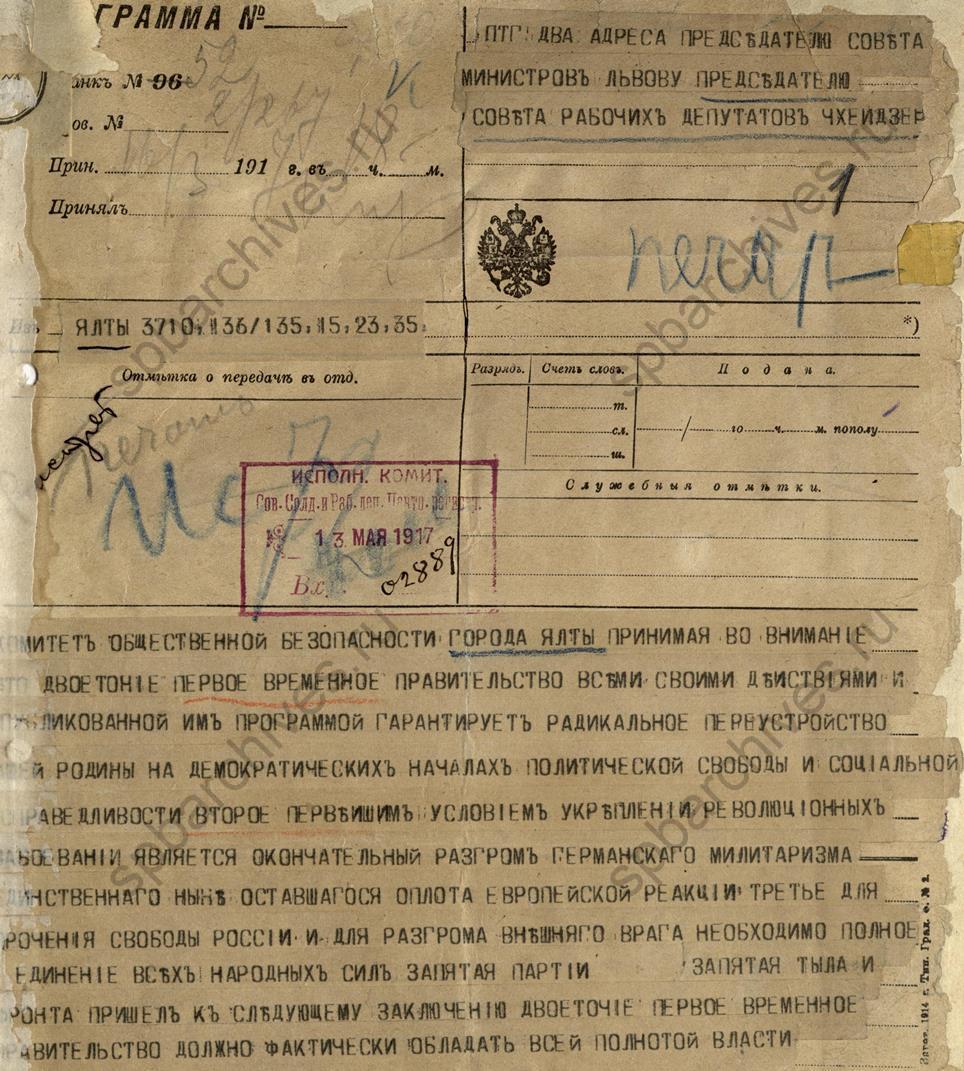 ГРАММА №
ПТГ ДВА АДРЕСА ПРЕДСѢДАТЕЛЮ СОВѢТА
МИНИСТРОВЪ ЛЬВОВУ ПРЕДСѢДАТЕЛЮ
СОВѢТА РАБОЧИХЪ ДЕПУТАТОВЪ ЧХЕИДЗЕ
анкъ № 96
52
ов. №
Прин. 191 г. въ ч. м.
Принялъ
1
печать
ЯЛТЫ 3710, 36/135, 15, 23, 35,
*)
Отмѣтка о передачѣ въ отд.
Разрядъ. Счетъ словъ. Подана.
т.
сл. / го ч. м. пополу
ш.
Служебныя отмѣтки.
ИСПОЛН. КОМИТ.
Сов. Солд. и Раб. деп.
13 МАЯ 1917
Вх. 02889
ОМИТЕТЪ ОБЩЕСТВЕННОЙ БЕЗОПАСНОСТИ ГОРОДА ЯЛТЫ ПРИНИМАЯ ВО ВНИМАНІЕ
ДВОЕТОНІЕ ПЕРВОЕ ВРЕМЕННОЕ ПРАВИТЕЛЬСТВО ВСѢМИ СВОИМИ ДѢИСТВІЯМИ И
ЛИКОВАННОЙ ИМЪ ПРОГРАММОЙ ГАРАНТИРУЕТЪ РАДИКАЛЬНОЕ ПЕРЕУСТРОЙСТВО
ЕЙ РОДИНЫ НА ДЕМОКРАТИЧЕСКИХЪ НАЧАЛАХЪ ПОЛИТИЧЕСКОЙ СВОБОДЫ И СОЦІАЛЬНОЙ
РАВЕДЛИВОСТИ ВТОРОЕ ПЕРВѢИШИМЪ УСЛОВІЕМЪ УКРѢПЛЕНІИ РЕВОЛЮЦІОННЫХЪ
ОЕВАНІИ ЯВЛЯЕТСЯ ОКОНЧАТЕЛЬНЫЙ РАЗГРОМЪ ГЕРМАНСКАГО МИЛИТАРИЗМА
ДИНСТВЕННАГО НЫНѢ ОСТАВШАГОСЯ ОПЛОТА ЕВРОПЕЙСКОЙ РЕАКЦІИ ТРЕТЬЕ ДЛЯ
РОЧЕНІЯ СВОБОДЫ РОССІИ И ДЛЯ РАЗГРОМА ВНѢШНЯГО ВРАГА НЕОБХОДИМО ПОЛНОЕ
ЕДИНЕНІЕ ВСѢХЪ НАРОДНЫХЪ СИЛЪ ЗАПЯТАЯ ПАРТІИ ЗАПЯТАЯ ТЫЛА И
РОНТА ПРИШЕЛЪ КЪ СЛѢДУЮЩЕМУ ЗАКЛЮЧЕНІЮ ДВОЕТОЧІЕ ПЕРВОЕ ВРЕМЕННОЕ
РАВИТЕЛЬСТВО ДОЛЖНО ФАКТИЧЕСКИ ОБЛАДАТЬ ВСЕЙ ПОЛНОТОЙ ВЛАСТИ
1914 г. Тип. Град. е. № 2.
spbarchives.ru
spbarchives.ru
spbarchives.ru
spbarchives.ru